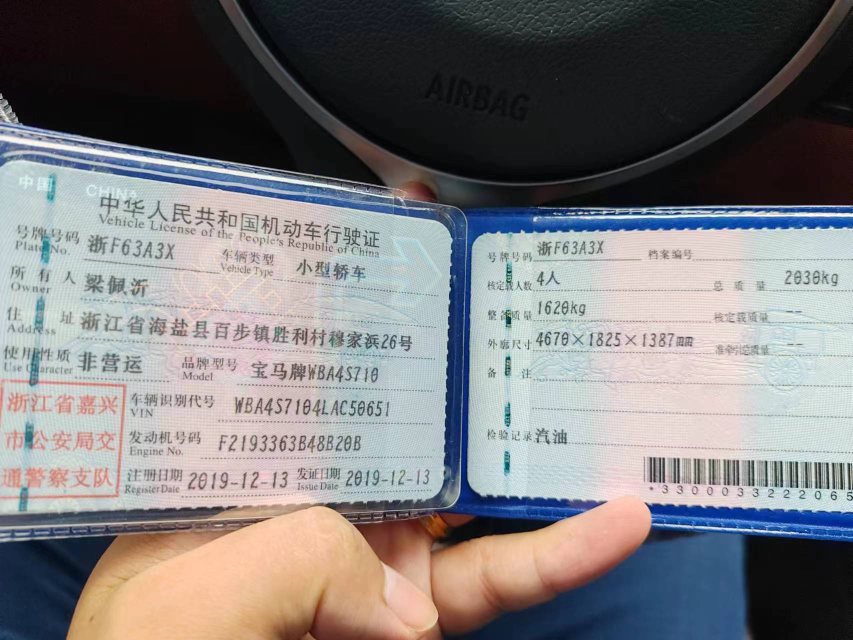 AIRBAG
中国 CHINA
中华人民共和国机动车行驶证
Vehicle License of the People's Republic of China
号牌号码 浙F63A3X 车辆类型 小型轿车
Plate No. Vehicle Type
所有人 梁佩沂
Owner
住址 浙江省海盐县百步镇胜利村穆家浜26号
Address
使用性质 非营运 品牌型号 宝马牌WBA4S710
Use Character Model
浙江省嘉兴
市公安局交
通警察支队
车辆识别代号 WBA4S7104LAC50651
VIN
发动机号码 F2193363B48B20B
Engine No.
注册日期 2019-12-13 发证日期 2019-12-13
Register Date Issue Date
号牌号码 浙F63A3X 档案编号
核定载人数 4人 总质量 2030kg
整备质量 1620kg 核定载质量 --
外廓尺寸 4670×1825×1387mm 准牵引总质量 --
备注
检验记录 汽油
*3300033222065